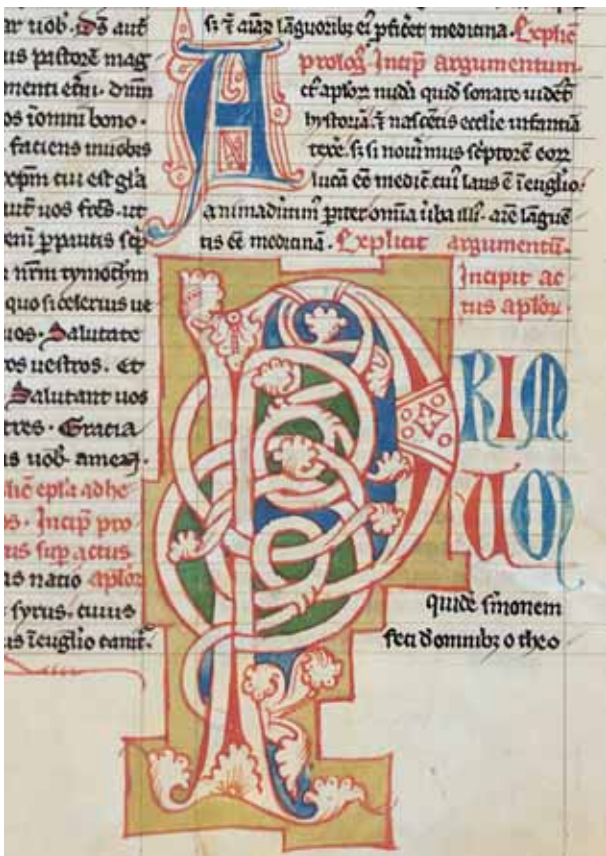 ar uob̄. ds̄ aut̄
us pastorē mag
menti et̄ni. dn̄m
os īomni bono.
faciens inuobis
xp̄m cui est gl̄a
aut̄ uos fr̄es. ut
eni ꝑpaucis sc̄p
nr̄m tymothm̄
quo si celerius ue
uos. Salutate
os uestros. Et
Salutant uos
tres. Gracia
s uob̄. amen.
ep̄la ad he
os. Incip̄ pro
us sup actus
as natio apl̄oꝝ
syrus. cuius
us īeuglio canit.
languoribꝫ ei ꝓficēt medicina. Explic̄
prolog. Incip̄ argumentum.
Actꝰ apl̄oꝝ nudā quid̄ sonare uident̄
hystoriā. ⁊ nascētis ecclie infantiā
texē. sꝫ si nouimus sc̄ptorē eoꝝ
lucā eē medicū. cui laus ē īeuglio.
animaduertim̄ ꝑiter omia uba illī. aīe langue
tis eē medicinā. Explicit argumentū.
Incipit ac
tus apl̄oꝝ.
PRIM
UM
quidē sermonem
feci d̄ omnibꝫ o theo